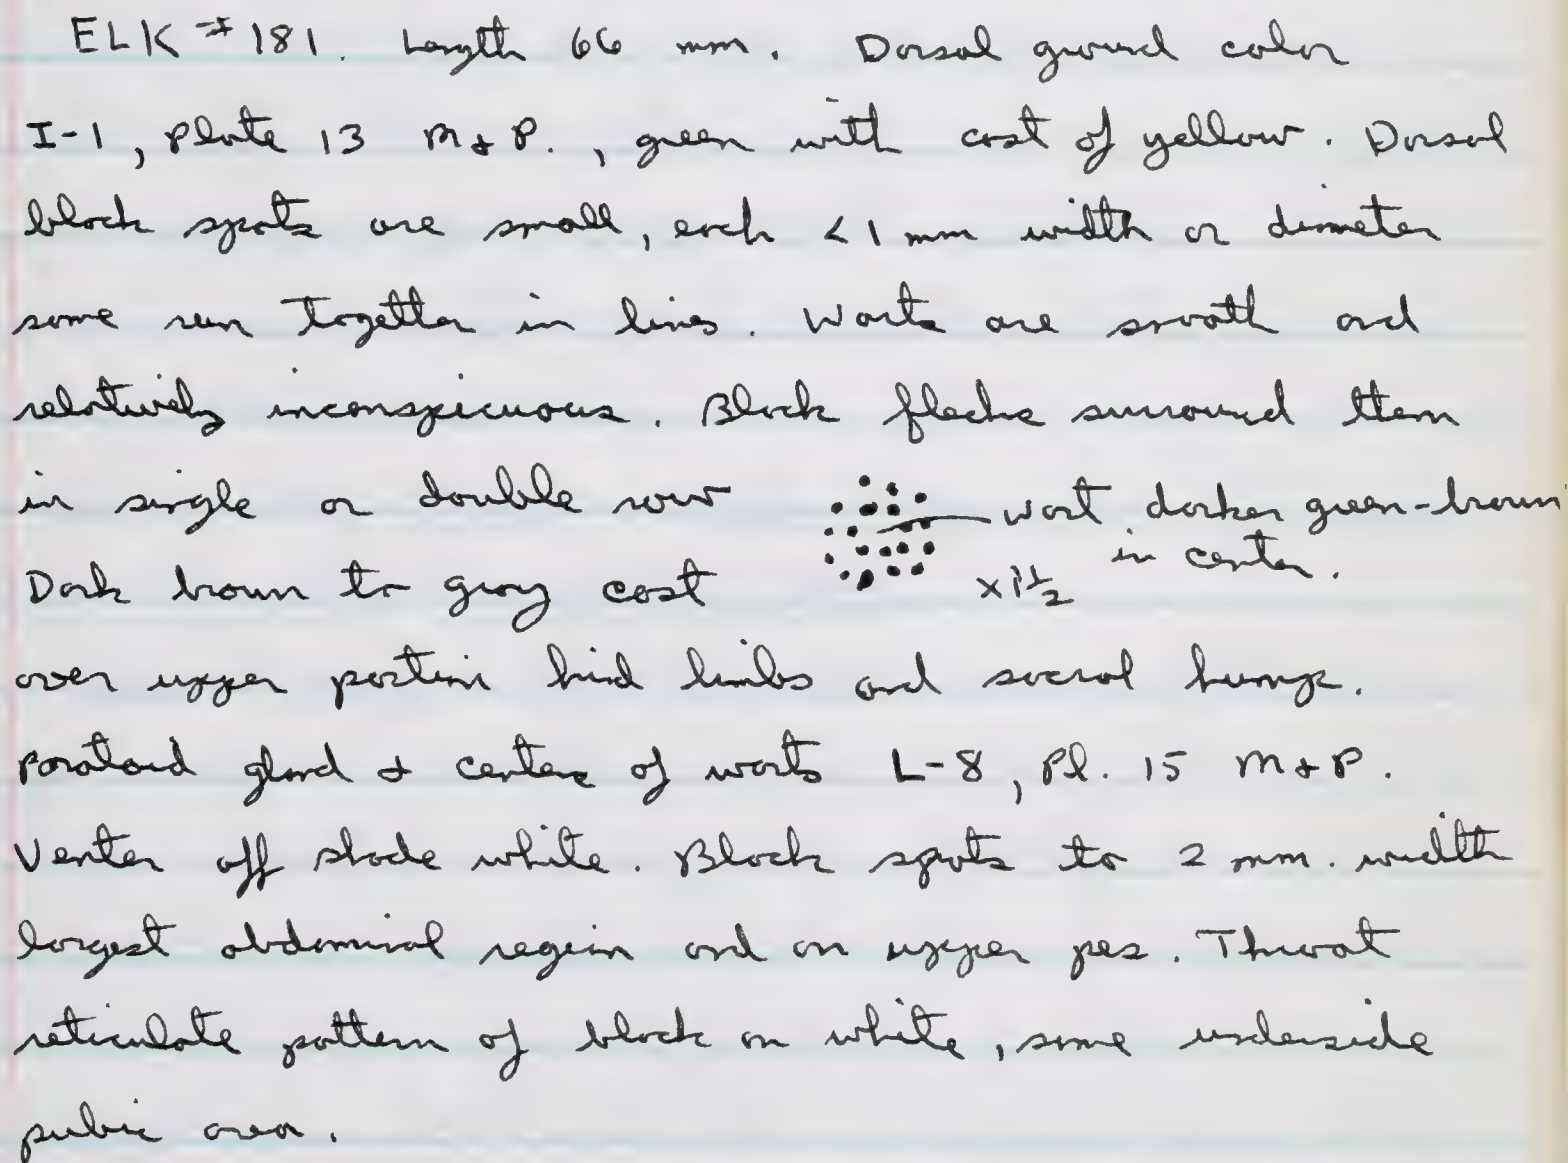 ELK #181. Length 66 mm. Dorsal ground color
I-1, Plate 13 M & P., green with cast of yellow. Dorsal
black spots are small, each < 1 mm width or diameter
some run together in lines. Warts are smooth and
relatively inconspicuous. Black flecks surround them
in single or double row
wart darker green-brown
in center.
x 1 1/2
Dark brown to gray cast
over upper portion hind limbs and sacral hump.
Paratoid gland & centers of warts L-8, Pl. 15 M & P.
Venter off shade white. Black spots to 2 mm. width
largest abdominal region and on upper pes. Throat
reticulate pattern of black on white, same underside
pubic area.